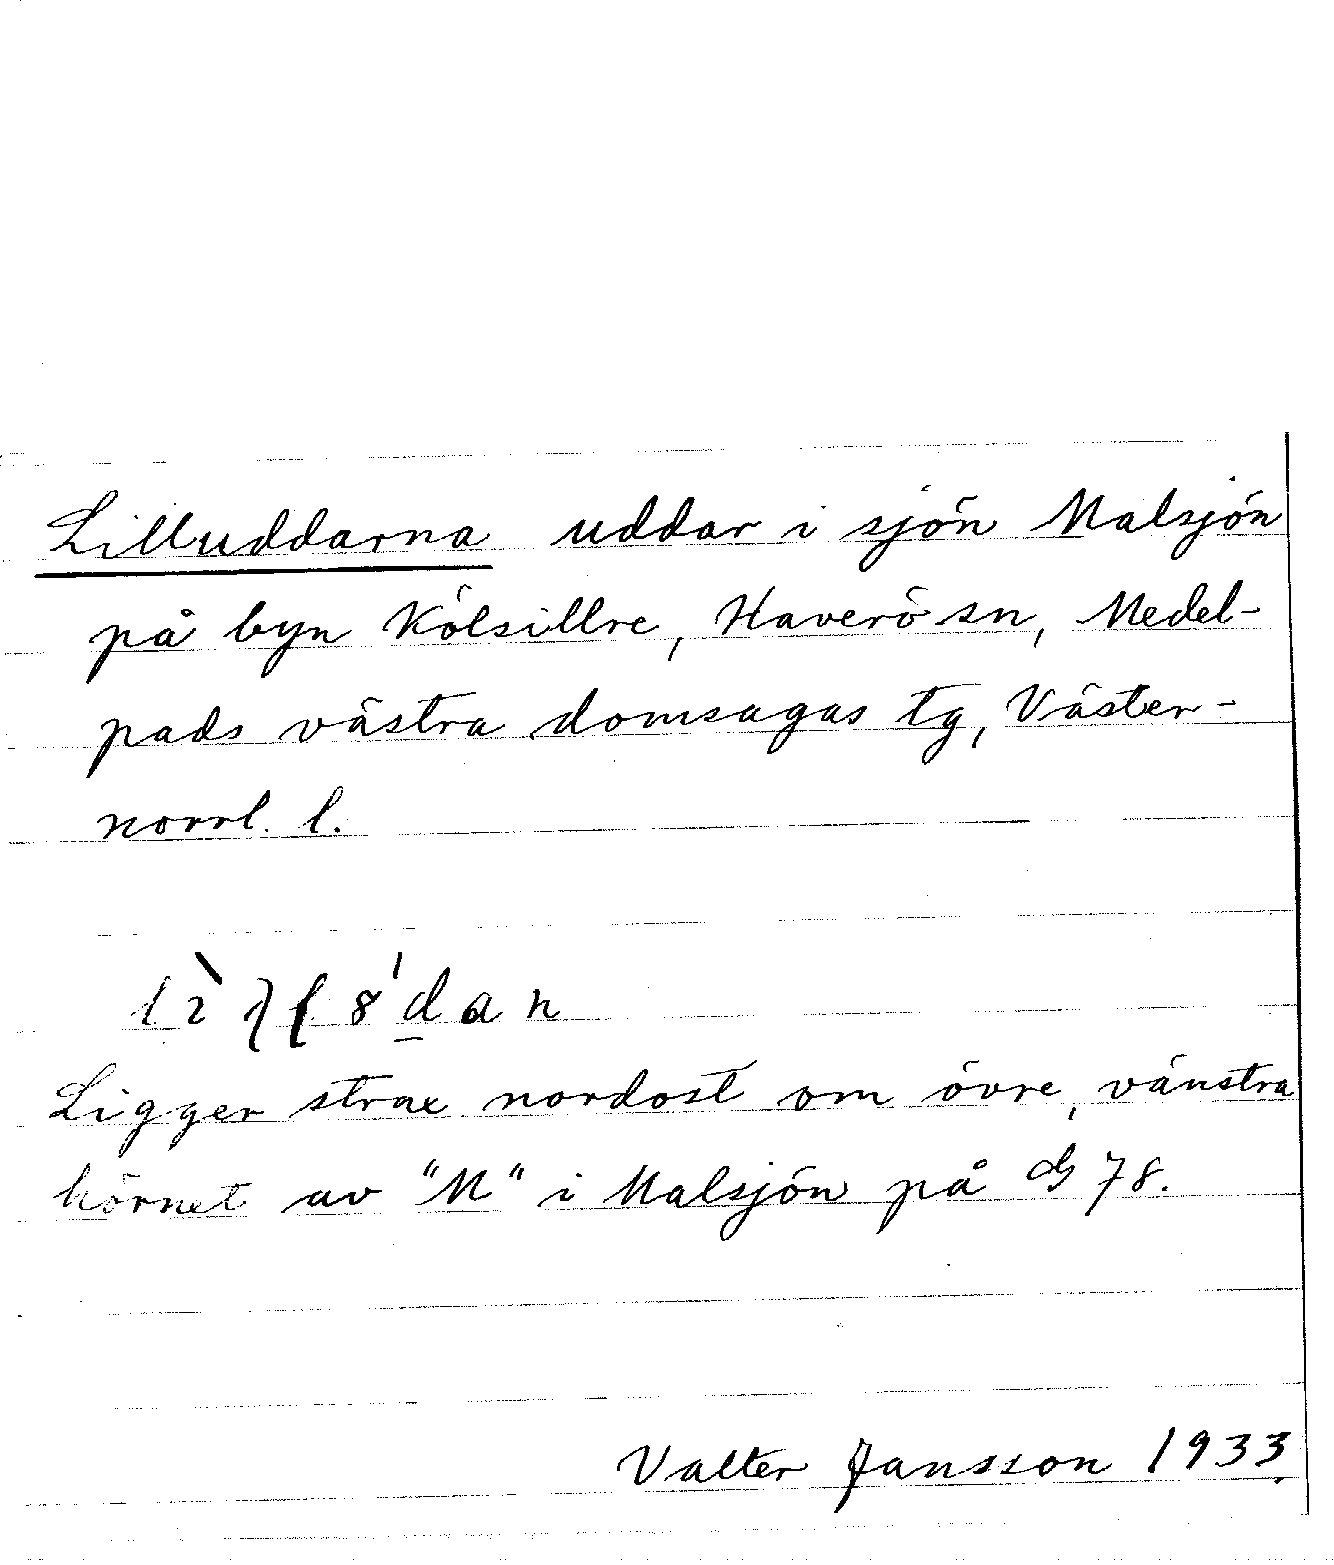 Lilluddarna uddar i sjön Malsjön
på byn Kölsillre, Haverö sn, Medel-
pads västra domsagas tg, Väster-
norrl. l.
Ligger strax nordost om övre, vänstra
hörnet av "M" i Malsjön på GS 78.
Valter Jansson 1933